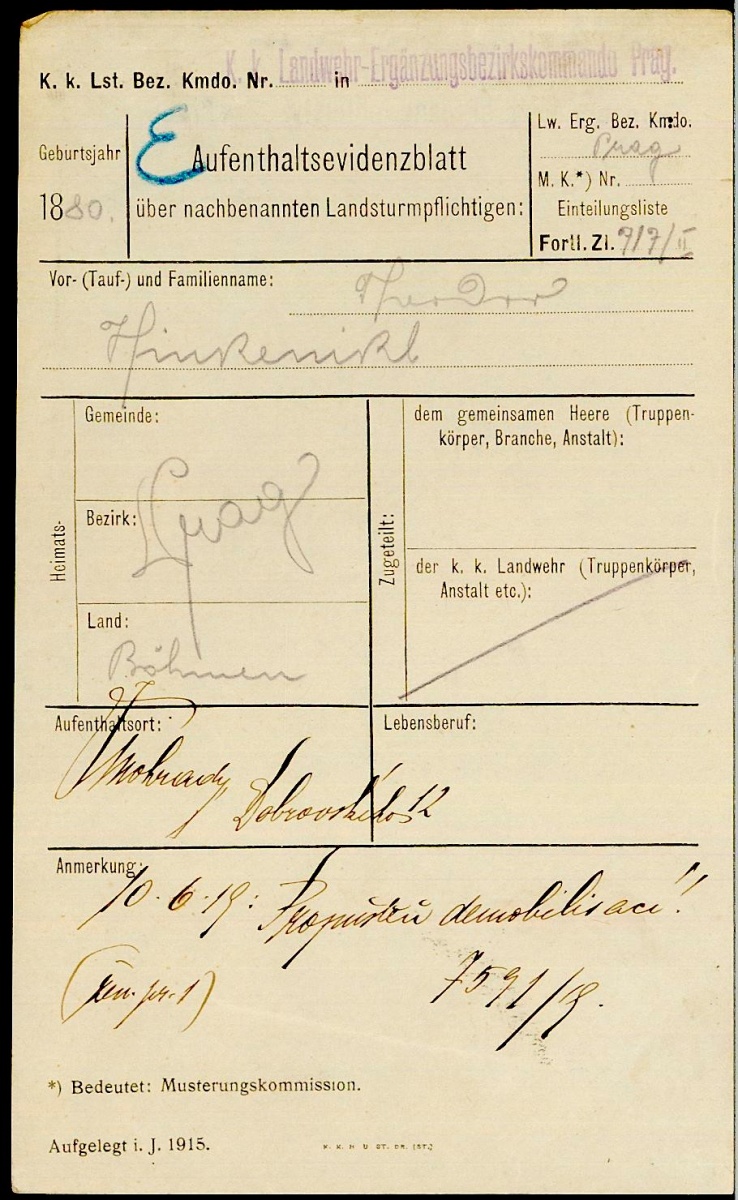 K. k. Landwehr-Ergänzungsbezirkskommando Prag.
K. k. Lst. Bez. Kmdo. Nr. in
Lw. Erg. Bez. Kmdo.
Prag
M. K.*) Nr.
Einteilungsliste
Fortl. Zl. 717/II
Geburtsjahr
1880.
E Aufenthaltsevidenzblatt
über nachbenannten Landsturmpflichtigen:
Vor- (Tauf-) und Familienname: Theodor
Hinkenikl
Heimats-
Gemeinde:
Bezirk: Prag
Land:
Böhmen
Zugeteilt:
dem gemeinsamen Heere (Truppen-
körper, Branche, Anstalt):
der k. k. Landwehr (Truppenkörper,
Anstalt etc.):
Aufenthaltsort:
Lebensberuf:
12
Anmerkung:
10.6.19: Propuštěn demobilisací!
7591/19.
*) Bedeutet: Musterungskommission.
Aufgelegt i. J. 1915.
K. K. H U ST. DR. (ST.)